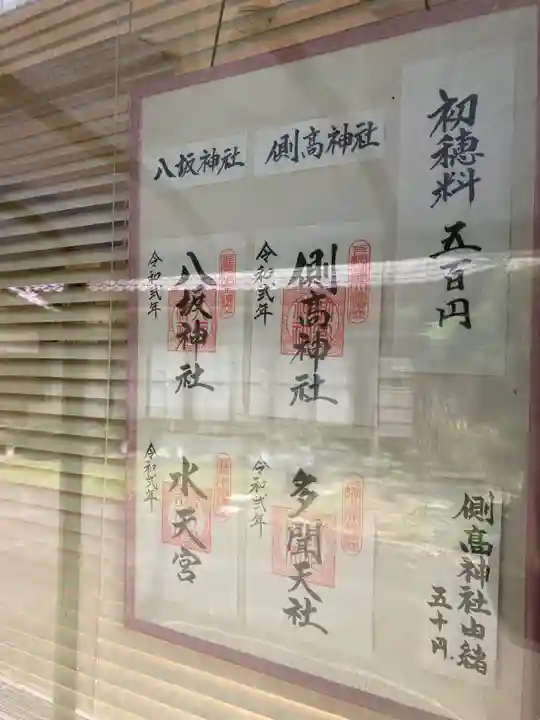 初穂料 五百円
側高神社由緒
五十円
側高神社
側高神社
令和弐年
八坂神社
八坂神社
令和弐年
多聞天社
令和弐年
水天宮
令和弐年